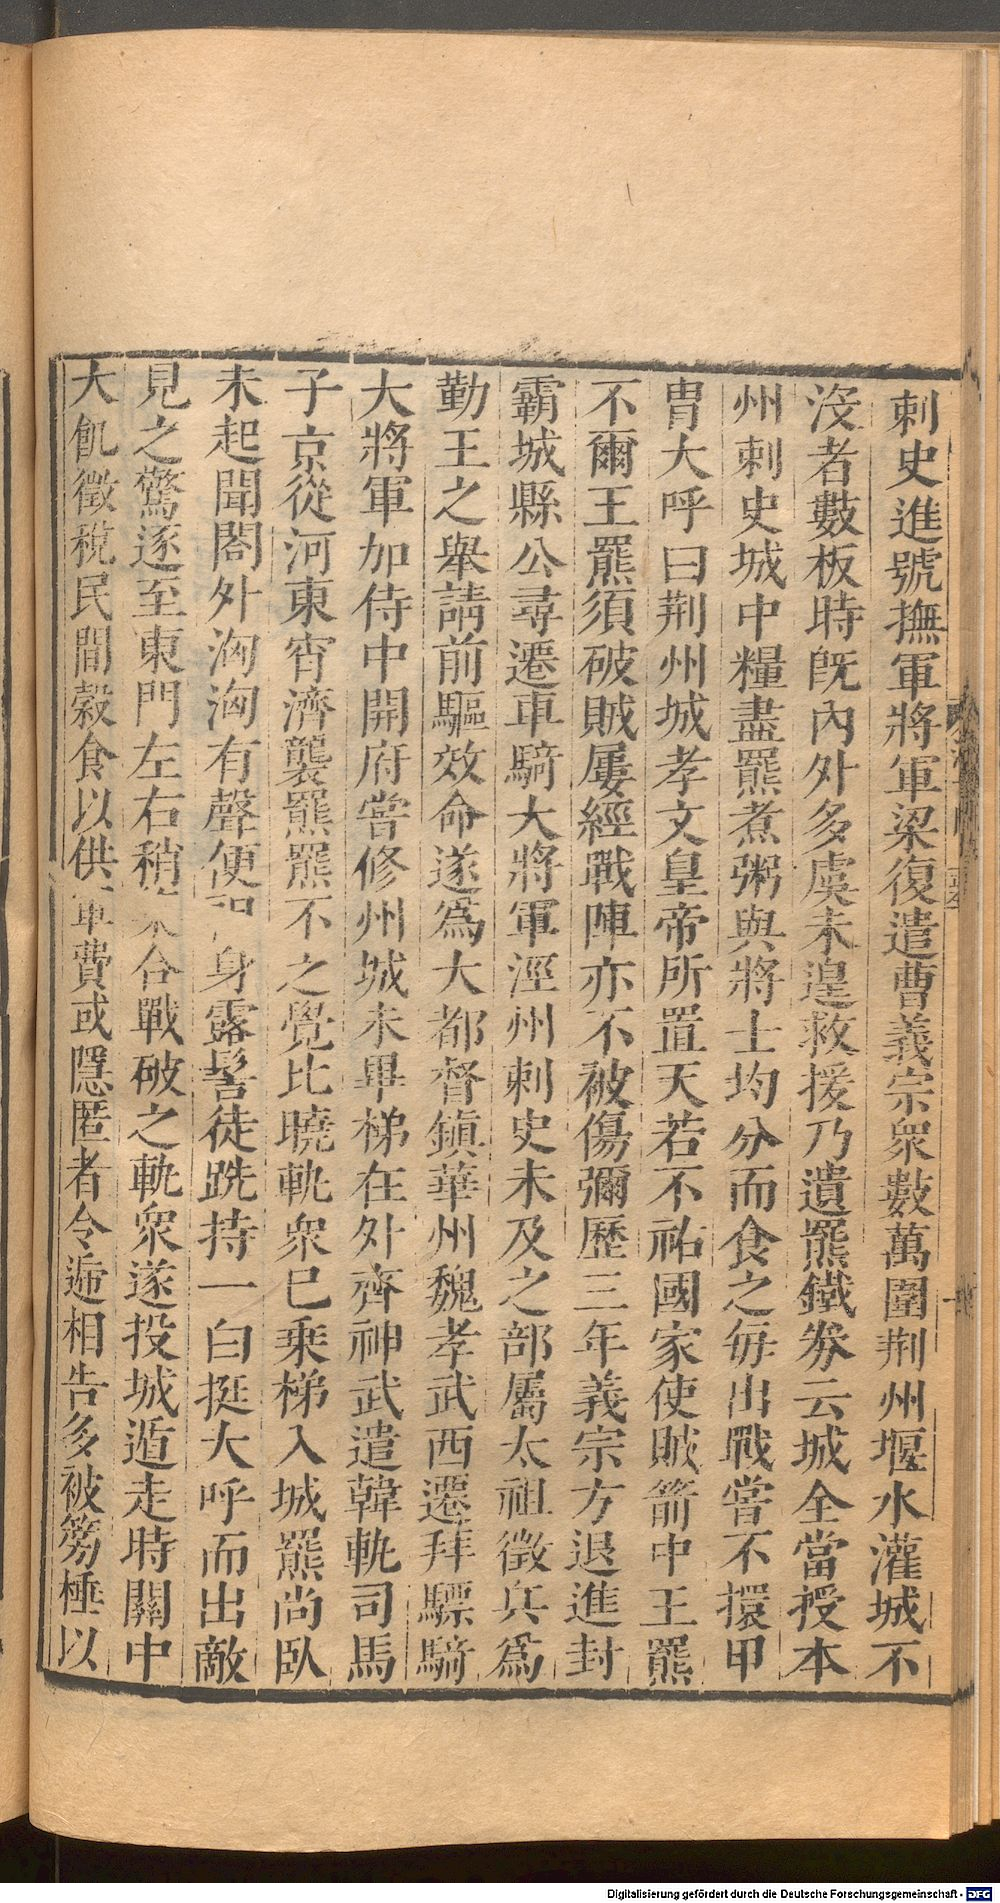 刺史進號撫軍將軍梁復遣曹義宗衆數萬圍荆州堰水灌城不
沒者數板時旣內外多虞未遑救援乃遺羆鐵券云城全當授本
州刺史城中糧盡羆煮粥與將士均分而食之每出戰嘗不擐甲
胄大呼曰荆州城孝文皇帝所置天若不祐國家使賊箭中王羆
不爾王羆須破賊屢經戰陣亦不被傷彌歷三年義宗方退進封
霸城縣公尋遷車騎大將軍涇州刺史未及之部屬太祖徵兵爲
勤王之舉請前驅效命遂爲大都督鎮華州魏孝武西遷拜驃騎
大將軍加侍中開府嘗修州城未畢梯在外齊神武遣韓軌司馬
子京從河東宵濟襲羆羆不之覺比曉軌衆已乘梯入城羆尚臥
未起聞閤外洶洶有聲便身露髻徒跣持一白挺大呼而出敵
見之驚逐至東門左右稍合戰破之軌衆遂投城遁走時關中
大飢徵稅民間穀食以供軍費或隱匿者令遞相告多被篣棰以
Digitalisierung gefördert durch die Deutsche Forschungsgemeinschaft - DFG